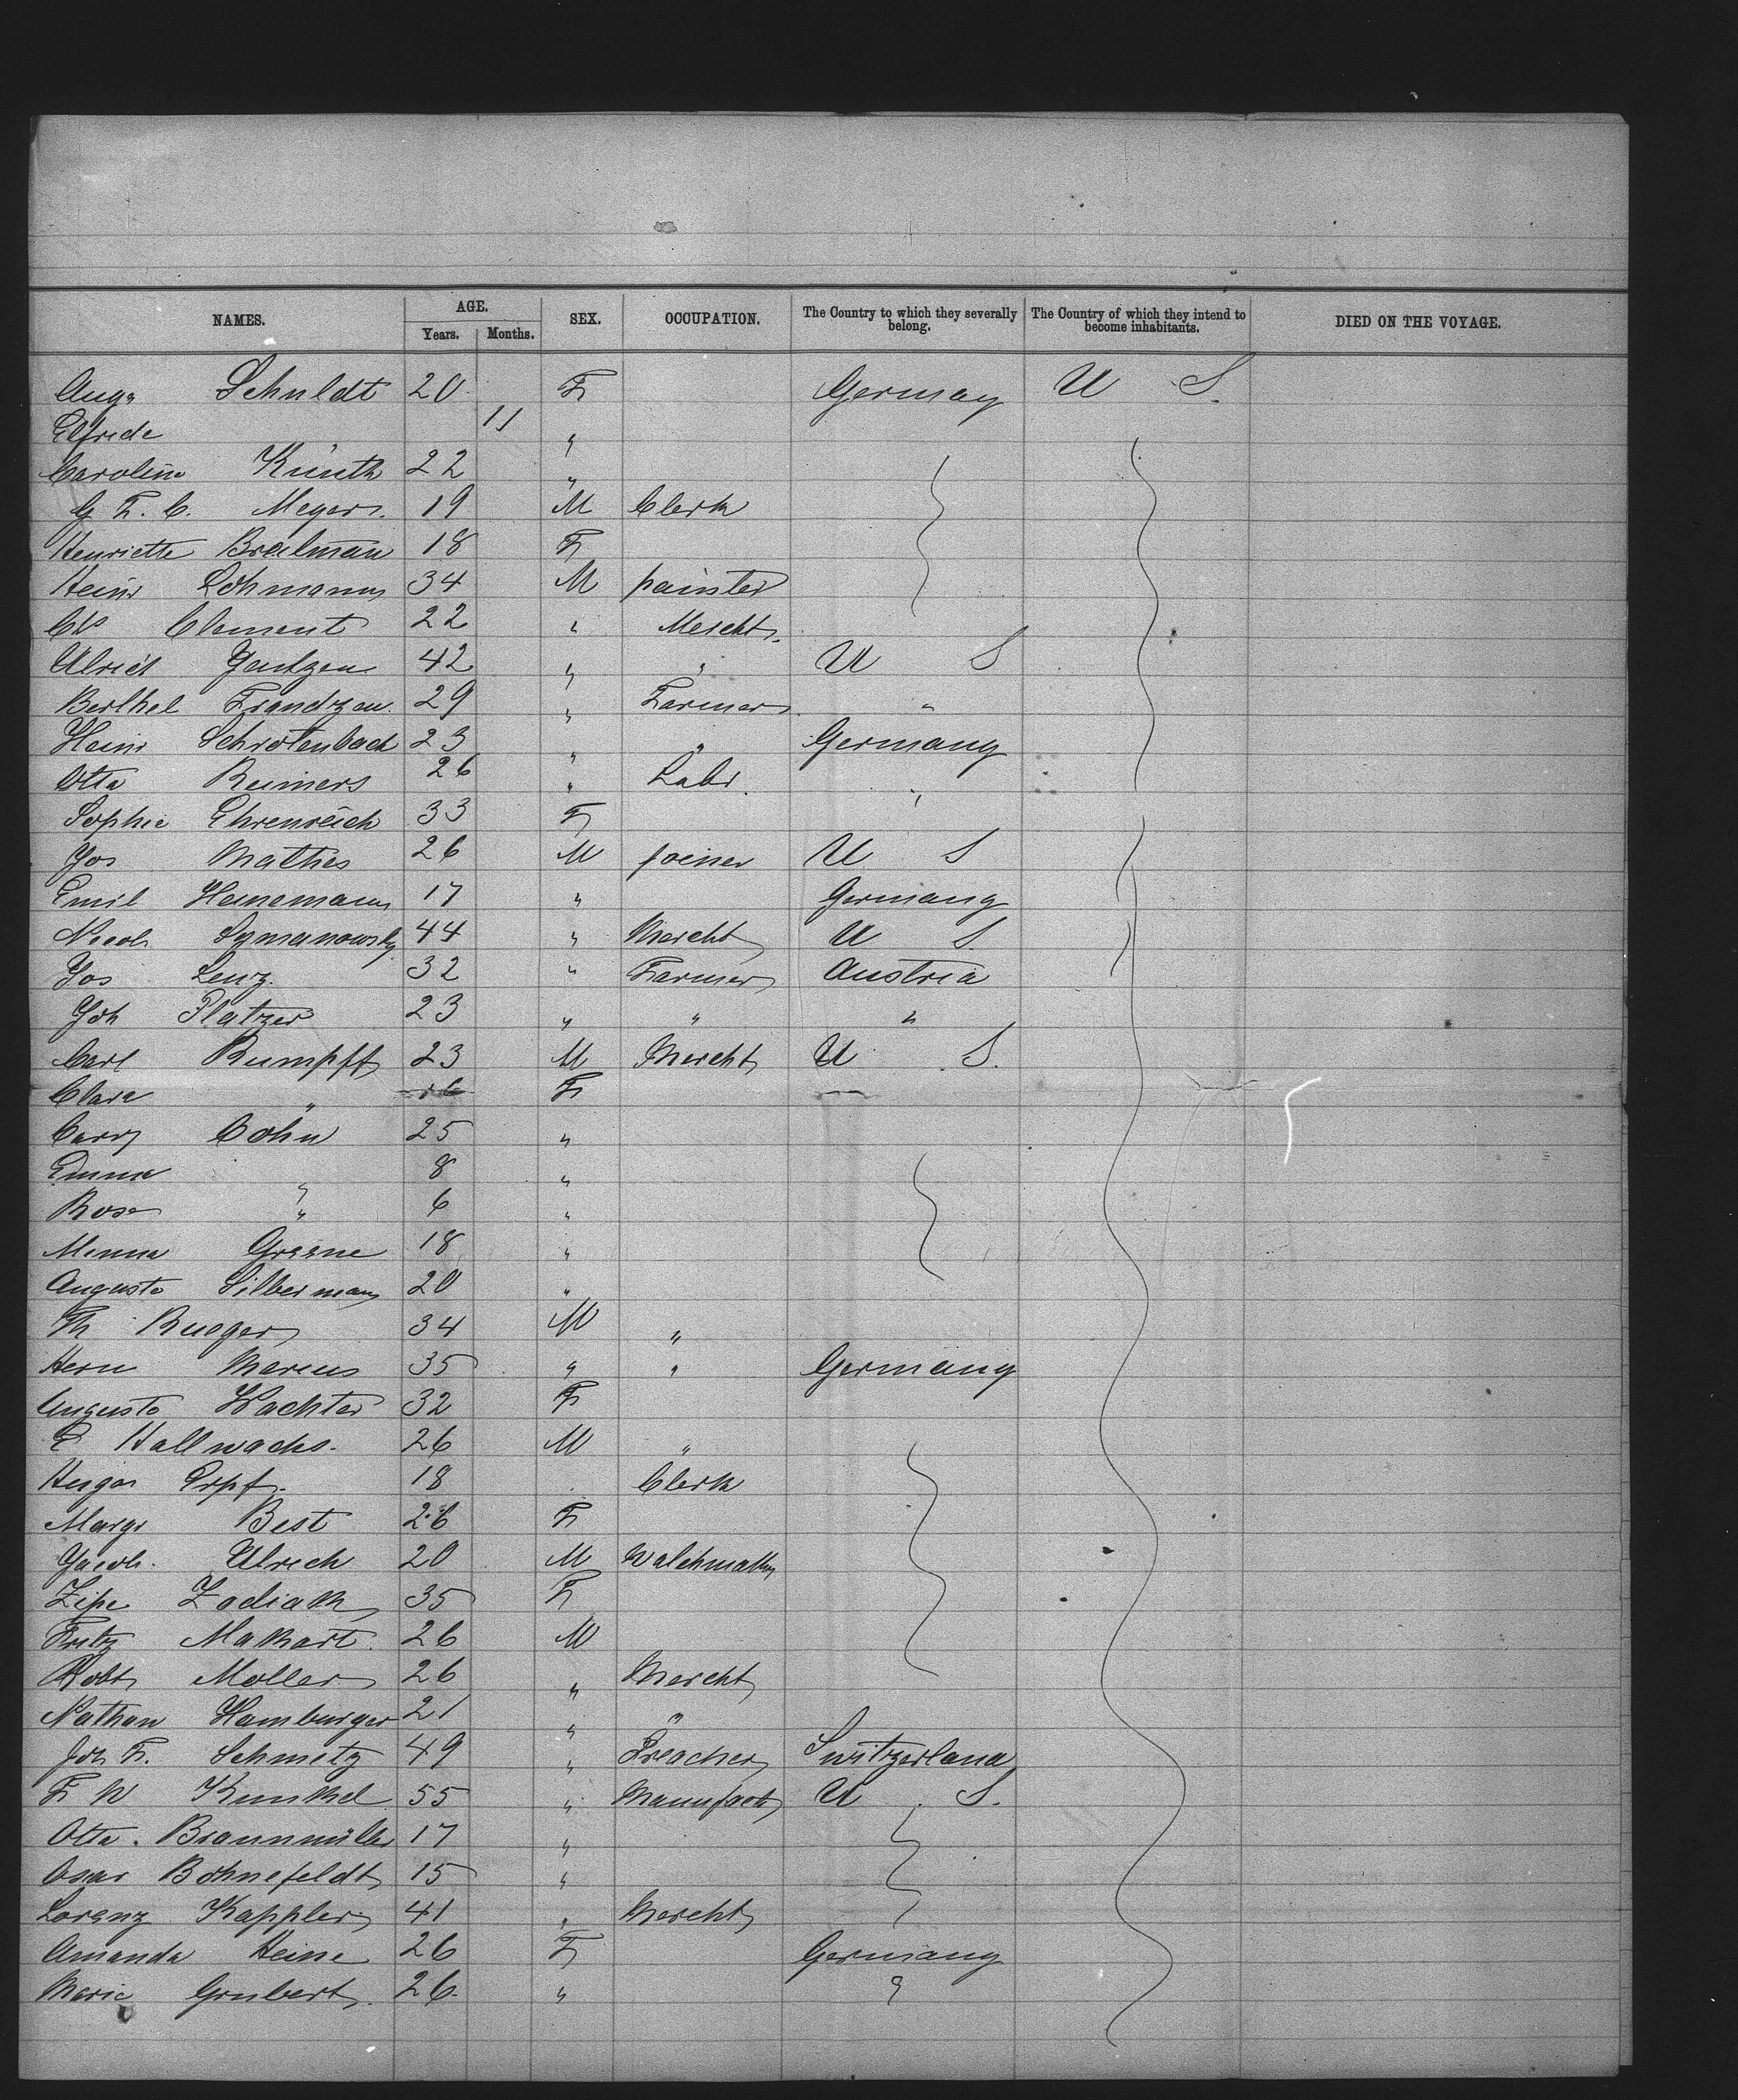 NAMES. AGE. Years. Months. SEX. OCCUPATION. The Country to which they severally belong. The Country of which they intend to become inhabitants. DIED ON THE VOYAGE.
Auga Schuldt 20 F Germany U S.
Elfride 11 "
Caroline Kunth 22 "
G F. C. Meyer. 19 M Clerk
Henriette Brelman 18 F
Heinr Lohmann 34 M painter
Chs Clement 22 " Mercht.
Ulrich Jantzen 42 " " U S
Berthel Frandzen. 29 " Farmer "
Heinr Schrotenbach 23 " " Germany
Otto Reimers 26 " Labr. "
Sophie Ehrenreich 33 F
Jos Mathes 26 M joiner U S
Emil Heinemann 17 " Germany
Jacob Symanowsky 44 " Mercht U S.
Jos Lenz. 32 " Farmer Austria
Joh Platzer 23 " " "
Carl Rumpff 23 M Mercht U S.
Clara " F
Carry Cohn 25 "
Emma " 8 "
Rosa " 6 "
Minna Greene 18 "
Augusta Silbermann 20 "
Th Rueger 34 M "
Herm Marcus 35 " " Germany
Augusta Wachter 32 F
E Hallwachs. 26 M "
Hugo Erpf. 18 Clerk
Margr Best 26 F
Jacob. Ulrich 20 M
Zipe Zodiak 35 F
Fritz Makart. 26 M
Robt Moller 26 " Mercht
Nathan Hamburger 21 " "
Joh F. Schmetz 49 " Preacher Switzerland
F W Kunkel 55 " Manufact U S.
Otto. Braunmüller 17 "
Oscar Bohnefeldt 15 "
Lorenz Kappler 41 " Mercht
Amanda Heine 26 F Germany
Marie Grubert. 26. " "